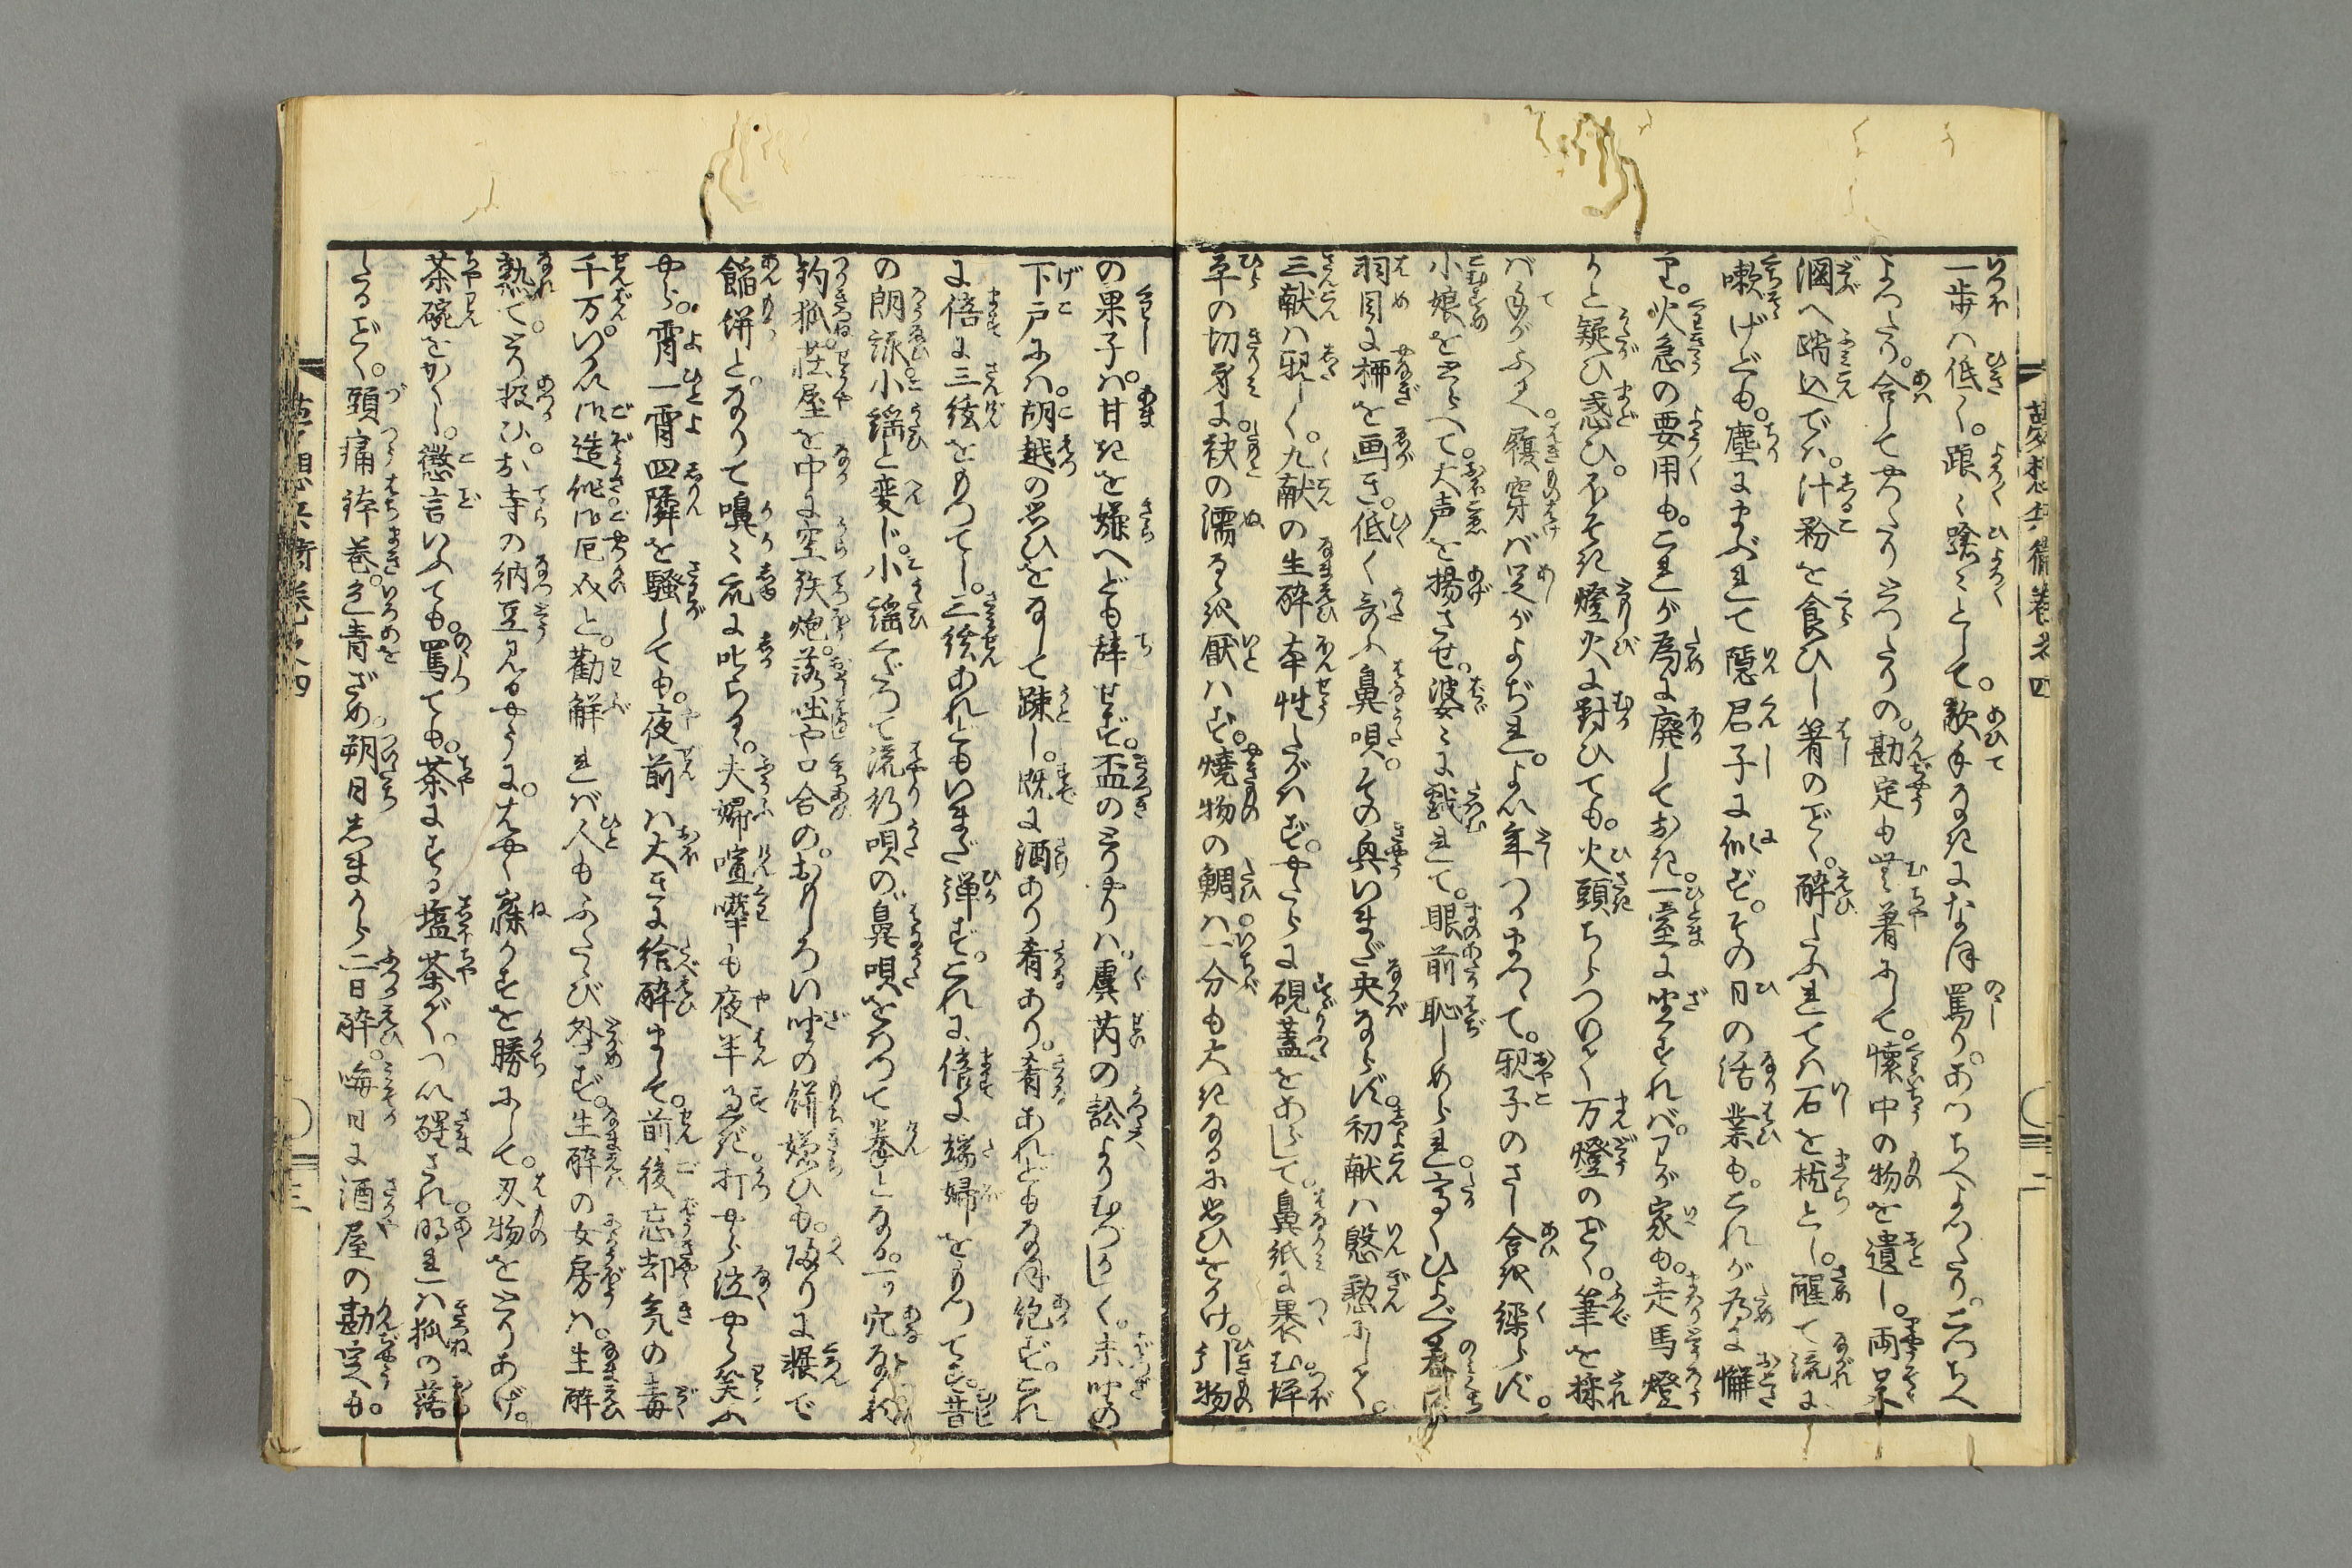 夢想兵衛巻之四
一歩ハ低く。踉々蹌々として。敵手なきになほ罵り。あつちへよつたり。こつちへ
よつたり。合してやつたりとつたりの。勘定も無茶にして。懐中の物を遺し。両足
溷へ踏込でハ。汁粉を食ひし箸のごとく。酔たふれてハ石を枕とし。醒て流に
嗽げども。塵にまぶれて隠君子に似ず。その日の活業も。これが為に懈
り。火急の要用も。これが為に廃しておき。一室に坐すれバ。わが家も。走馬燈
かと疑ひ惑ひ。ほそき燈火に對ひても。火頭ちらついて万燈のごとく。筆を採れ
バ手がふるへ。履穿バ足がよぢれ。よい年つかまつて。親子のさし合を繰らず。
小娘をとらへて。大声を揚させ。婆々に戯れて。眼前恥しめられ。高くひよぐる
羽目に柳を画き。低く うたふ鼻唄。その興いまだ央ならず。初献ハ慇懃にしく。
三献ハ親しく。九献の生酔本性たがハず。やたらに硯蓋をあらして。鼻紙に褁む。坪
平の切身に袂の濡るを厭ハず。焼物の鯛ハ。一分も大きなるに思ひをかけ。引物
の果子ハ。甘きを嫌へども辞せず。盃のとりやりハ。虞芮の訟よりむづかしく。末吟の
下戸にハ。胡越の思ひをなして疎し。既に酒あり肴あり。肴あれどもなほ飽ず。これ
に倍に三絃をもつてし。三絃あれどもいまだ弾ず。これに倍に端婦をもつてす。昔
の朗詠小謡と変じ。小謡くだつて流行唄の鼻唄をはつて拳となる。
釣狐。荘屋を中に空鉄炮。落咄や口合の。おもしろい坐の餅嫌ひも。帰りに猴で
餡餅と。なりて嗅々 に叱らる。夫婦喧嘩も夜半過。打やら泣やら笑ふ
やら。霄一霄四隣を騒しても。夜前ハ大きに給酔まして。前後忘却気の毒
千万。いかい御造作御厄介と。勸解れバ人もふたゝび咎ず。生酔の女房ハ。生酔
熟て。とり扱ひ。お寺の納豆見るやうに。はやく寐かすを勝にして。刃物をとりあげ。
茶碗をかくし。懲言いふても。罵ても。茶にする塩茶がつい醒され。明れハ狐の落
たるごとく。頭痛鉢巻。色青ざめ。朔日しまから二日酔。晦日に酒屋の勘定も。
夢想兵衛巻之四
二
三